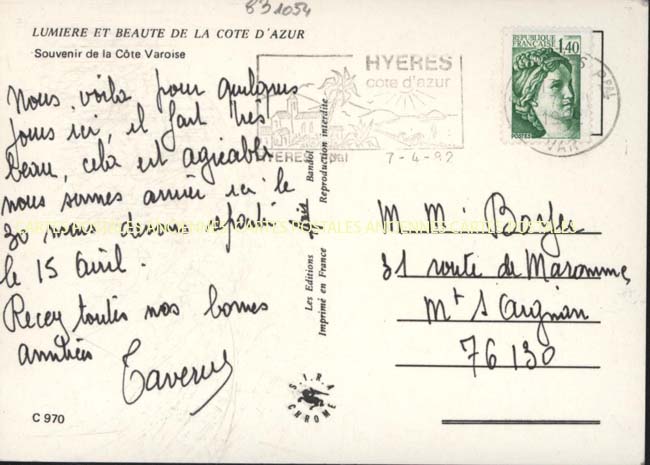 831054
LUMIERE ET BEAUTE DE LA COTE D'AZUR
Souvenir de la Côte Varoise
Nous voila pour quelques
jours ici, il fait très
beau, cela est agréable
nous sommes arrivé ici le
30 mars devons repartir
le 15 Avril.
Recey toutes nos bonnes
amitiées
Taverne
C 970
HYERES
cote d'azur
HYERES Ppal
7-4-82
REPUBLIQUE FRANÇAISE
1,40
POSTES
PPAL
VAR
Les Editions Bandol
Imprimé en France Reproduction interdite
S.I.R.A.
CHROME
M Mr
31 route de Maromme,
Mt S Aignan
76130
CARTES POSTALES ANCIENNES CARTES POSTALES ANCIENNES CARTES POSTALES